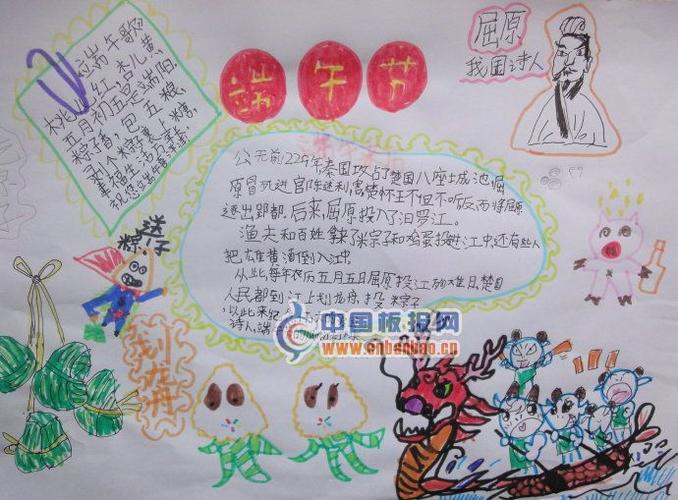 端午节
屈原
我国诗人
端午歌
桃儿红杏儿黄
五月初五是端阳
粽子香,包五粮
幸福生活万年长
祝您端午
公元前229年秦国攻占了楚国八座城池屈
原冒死进宫陈述利害楚怀王不但不听反而将屈原
逐出郢都,后来,屈原投入了汨罗江。
渔夫和百姓拿了米粽子和鸡蛋投进江中,还有些人
把雄黄酒倒入江中
从此,每年农历五月五日屈原投江殉难日,楚国
人民都到江上划龙舟,投粽子
以此来纪
诗人,端
送粽子
划龙舟
中国板报网
www.cnbanbao.cn